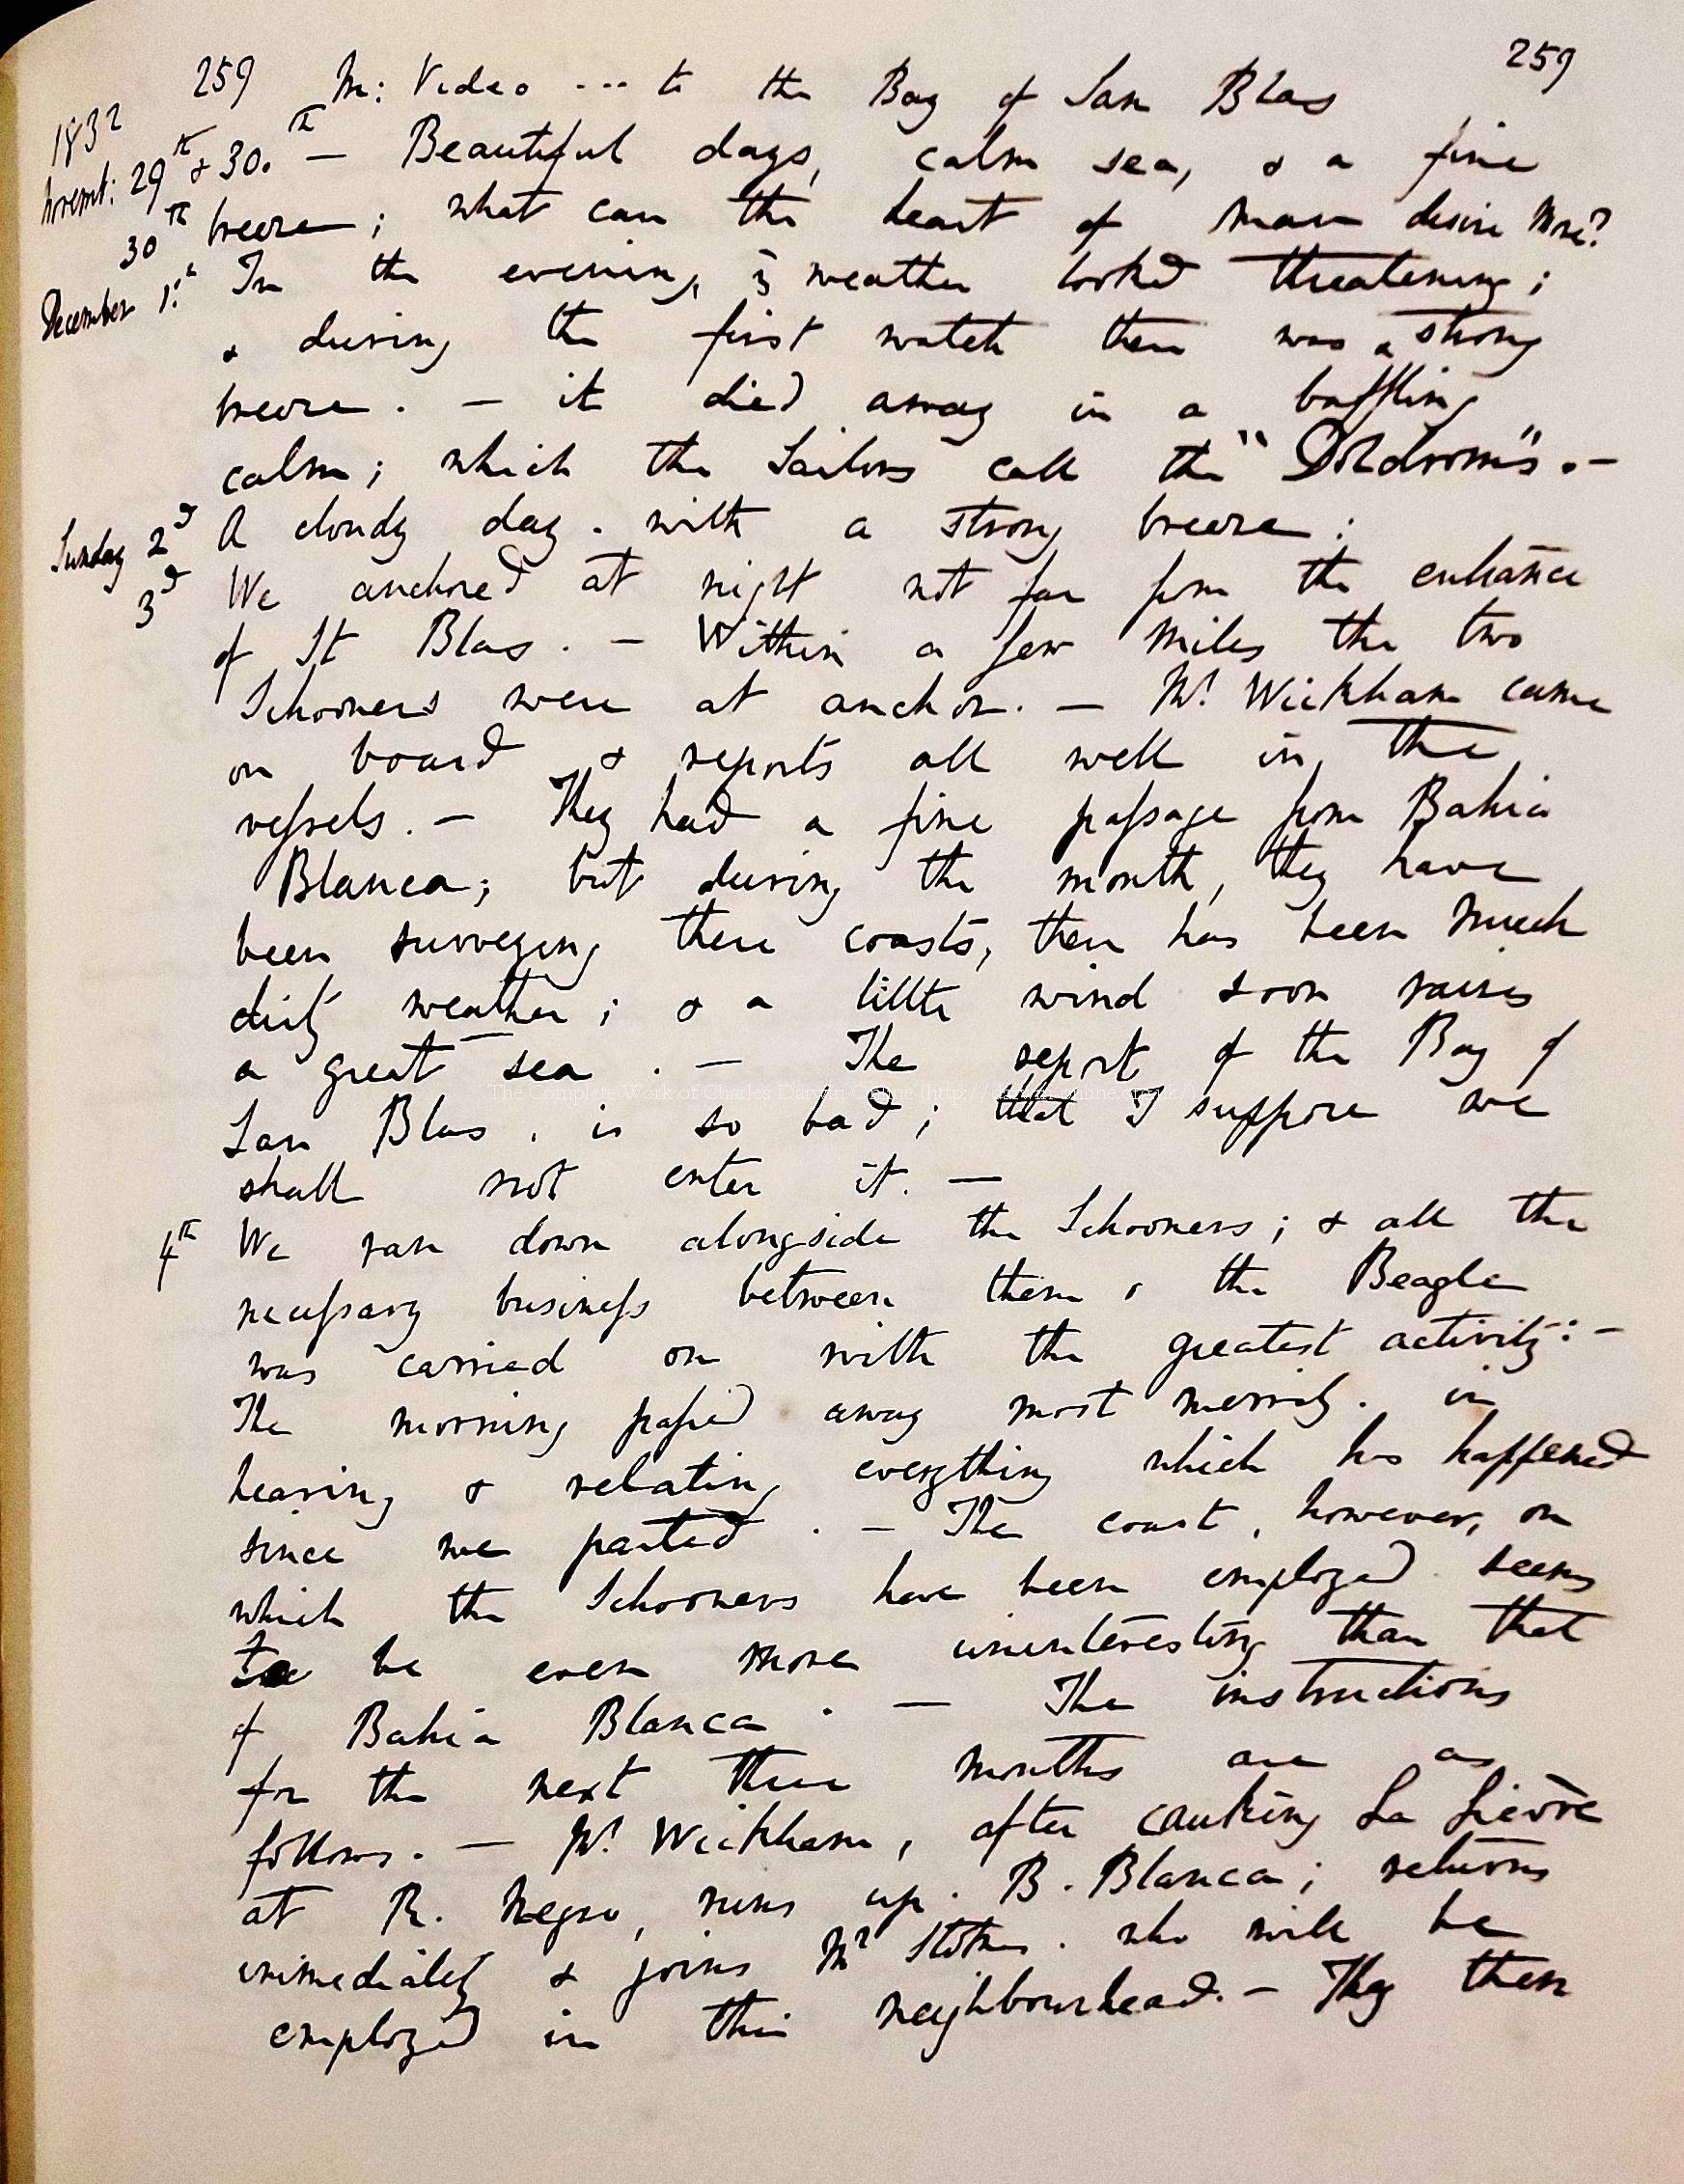 259 M: Video ... to the Bay of San Blas 259
1832
Novemt: 29th & 30.th — Beautiful days, calm sea, & a fine
30th breeze; what can the heart of man desire more?
December 1.st In the evening, weather looked threatening;
& during the first watch there was a strong
breeze. — it died away in a baffling
calm; which the Sailors call the "Doldroms". —
Sunday 2d A cloudy day. with a strong breeze:
3d We anchored at night not far from the entrance
of St Blas. — Within a few miles the two
Schooners were at anchor. — Mr Wickham came
on board & reports all well in the
vessels. — They had a fine passage from Bahia
Blanca; but during the month, they have
been surveying these coasts, there has been much
dirty weather; & a little wind soon raises
a great sea. — The report of the Bay of
San Blas, is so bad; that I suppose we
shall not enter it. —
4th We ran down alongside the Schooners; & all the
necessary business between them & the Beagle
was carried on with the greatest activity: —
The morning passed away most merrily. in
hearing & relating everything which has happened
since we parted. — The coast, however, on
which the Schooners have been employed seems
to be even more uninteresting than that
of Bahia Blanca. — The instructions
for the next three months are as
follows. — Mr Wickham, after caulking La Lievre
at R. Negro, runs up. B. Blanca; returns
immediately & joins Mr Stokes. who will be
employed in this neighbourhead. — They then